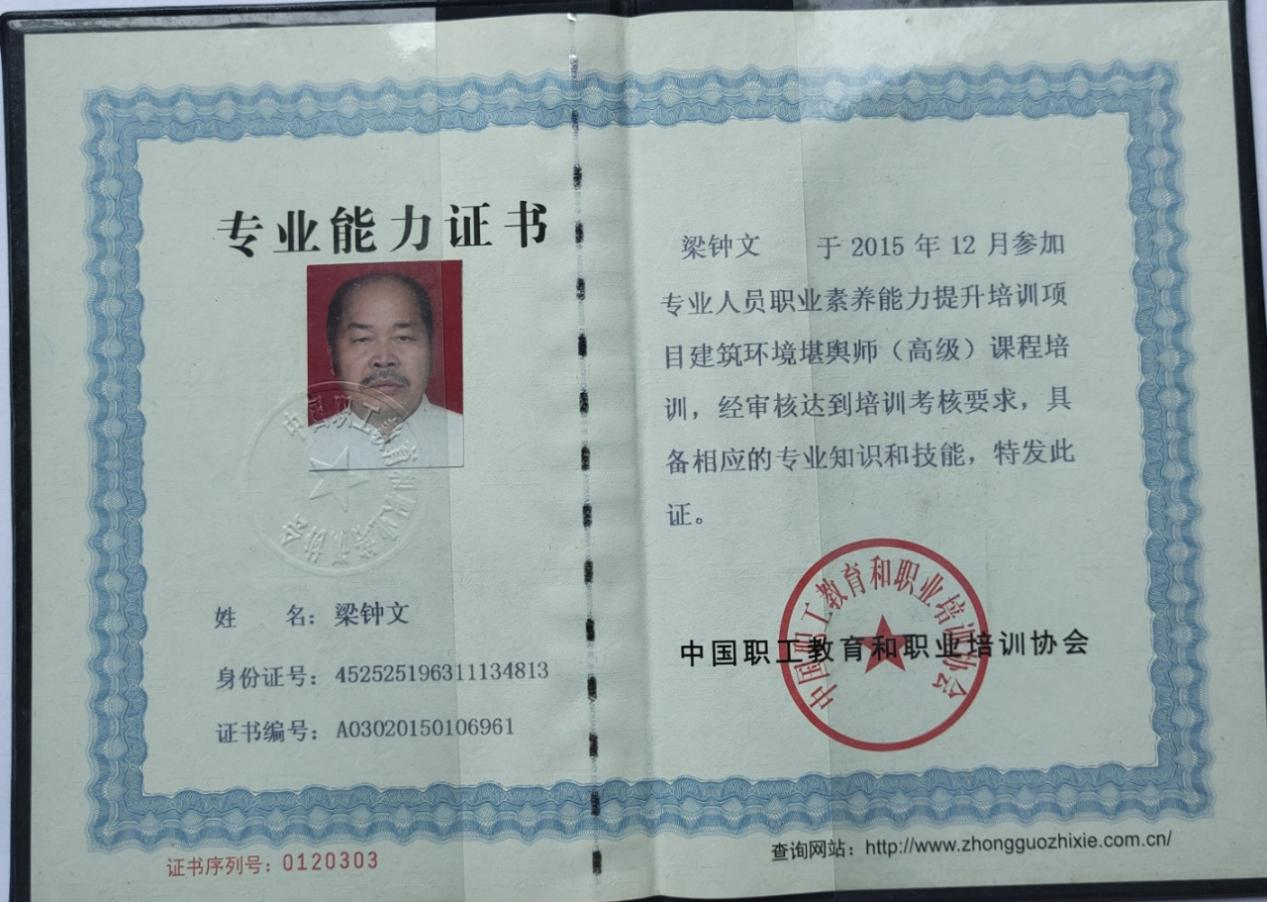 专业能力证书
中国职工教育和职业培训协会
姓　　名：梁钟文
身份证号：452525196311134813
证书编号：A03020150106961
证书序列号：0120303
梁钟文　　于 2015 年 12 月参加
专业人员职业素养能力提升培训项
目建筑环境堪舆师（高级）课程培
训，经审核达到培训考核要求，具
备相应的专业知识和技能，特发此
证。
中国职工教育和职业培训协会
中国职工教育和职业培训协会
查询网站：http://www.zhongguozhixie.com.cn/